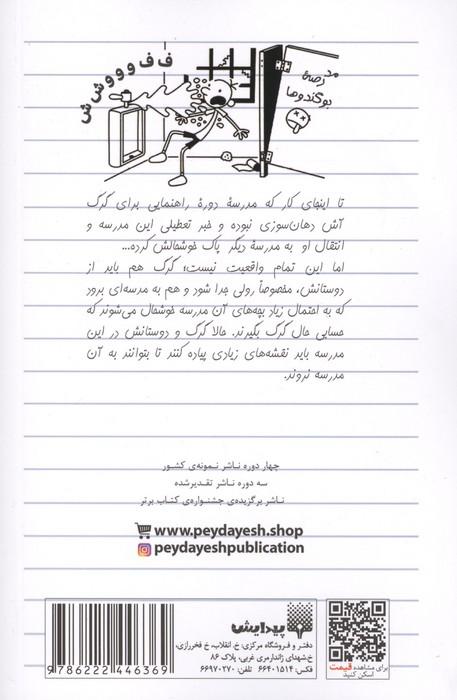 ف ف و و و ش ش ش
مدرصهٔ
بوگندوها
تا اینجای کار که مدرسهٔ دورهٔ راهنمایی برای گرگ
آش دهان‌سوزی نبوده و خبر تعطیلی این مدرسه و
انتقال او به مدرسهٔ دیگر پاک خوشحالش کرده...
اما این تمام واقعیت نیست؛ گرگ هم باید از
دوستانش، مخصوصاً رولی جدا شود و هم به مدسه‌ای برود
که به احتمال زیاد بچه‌های آن مدرسه خوشحال می‌شوند که
حسابی حال گرگ بگیرند. حالا گرگ و دوستانش در این
مدرسه باید نقشه‌های زیادی پیاده کنند تا بتوانند به آن
مدرسه نروند.
چهار دوره ناشر نمونه‌ی کشور
سه دوره ناشر تقدیرشده
ناشر برگزیده‌ی جشنواره‌ی کتاب برتر
www.peydayesh.shop
peydayeshpublication
پیدایش
دفتر و فروشگاه مرکزی: خ انقلاب، خ فخررازی،
خ شهدای ژاندارمری غربی، پلاک ۸۶
فکس: ۶۶۴۰۱۵۱۴ تلفن: ۶۶۹۷۰۲۷۰
برای مشاهده قیمت
اسکن کنید
9786222446369